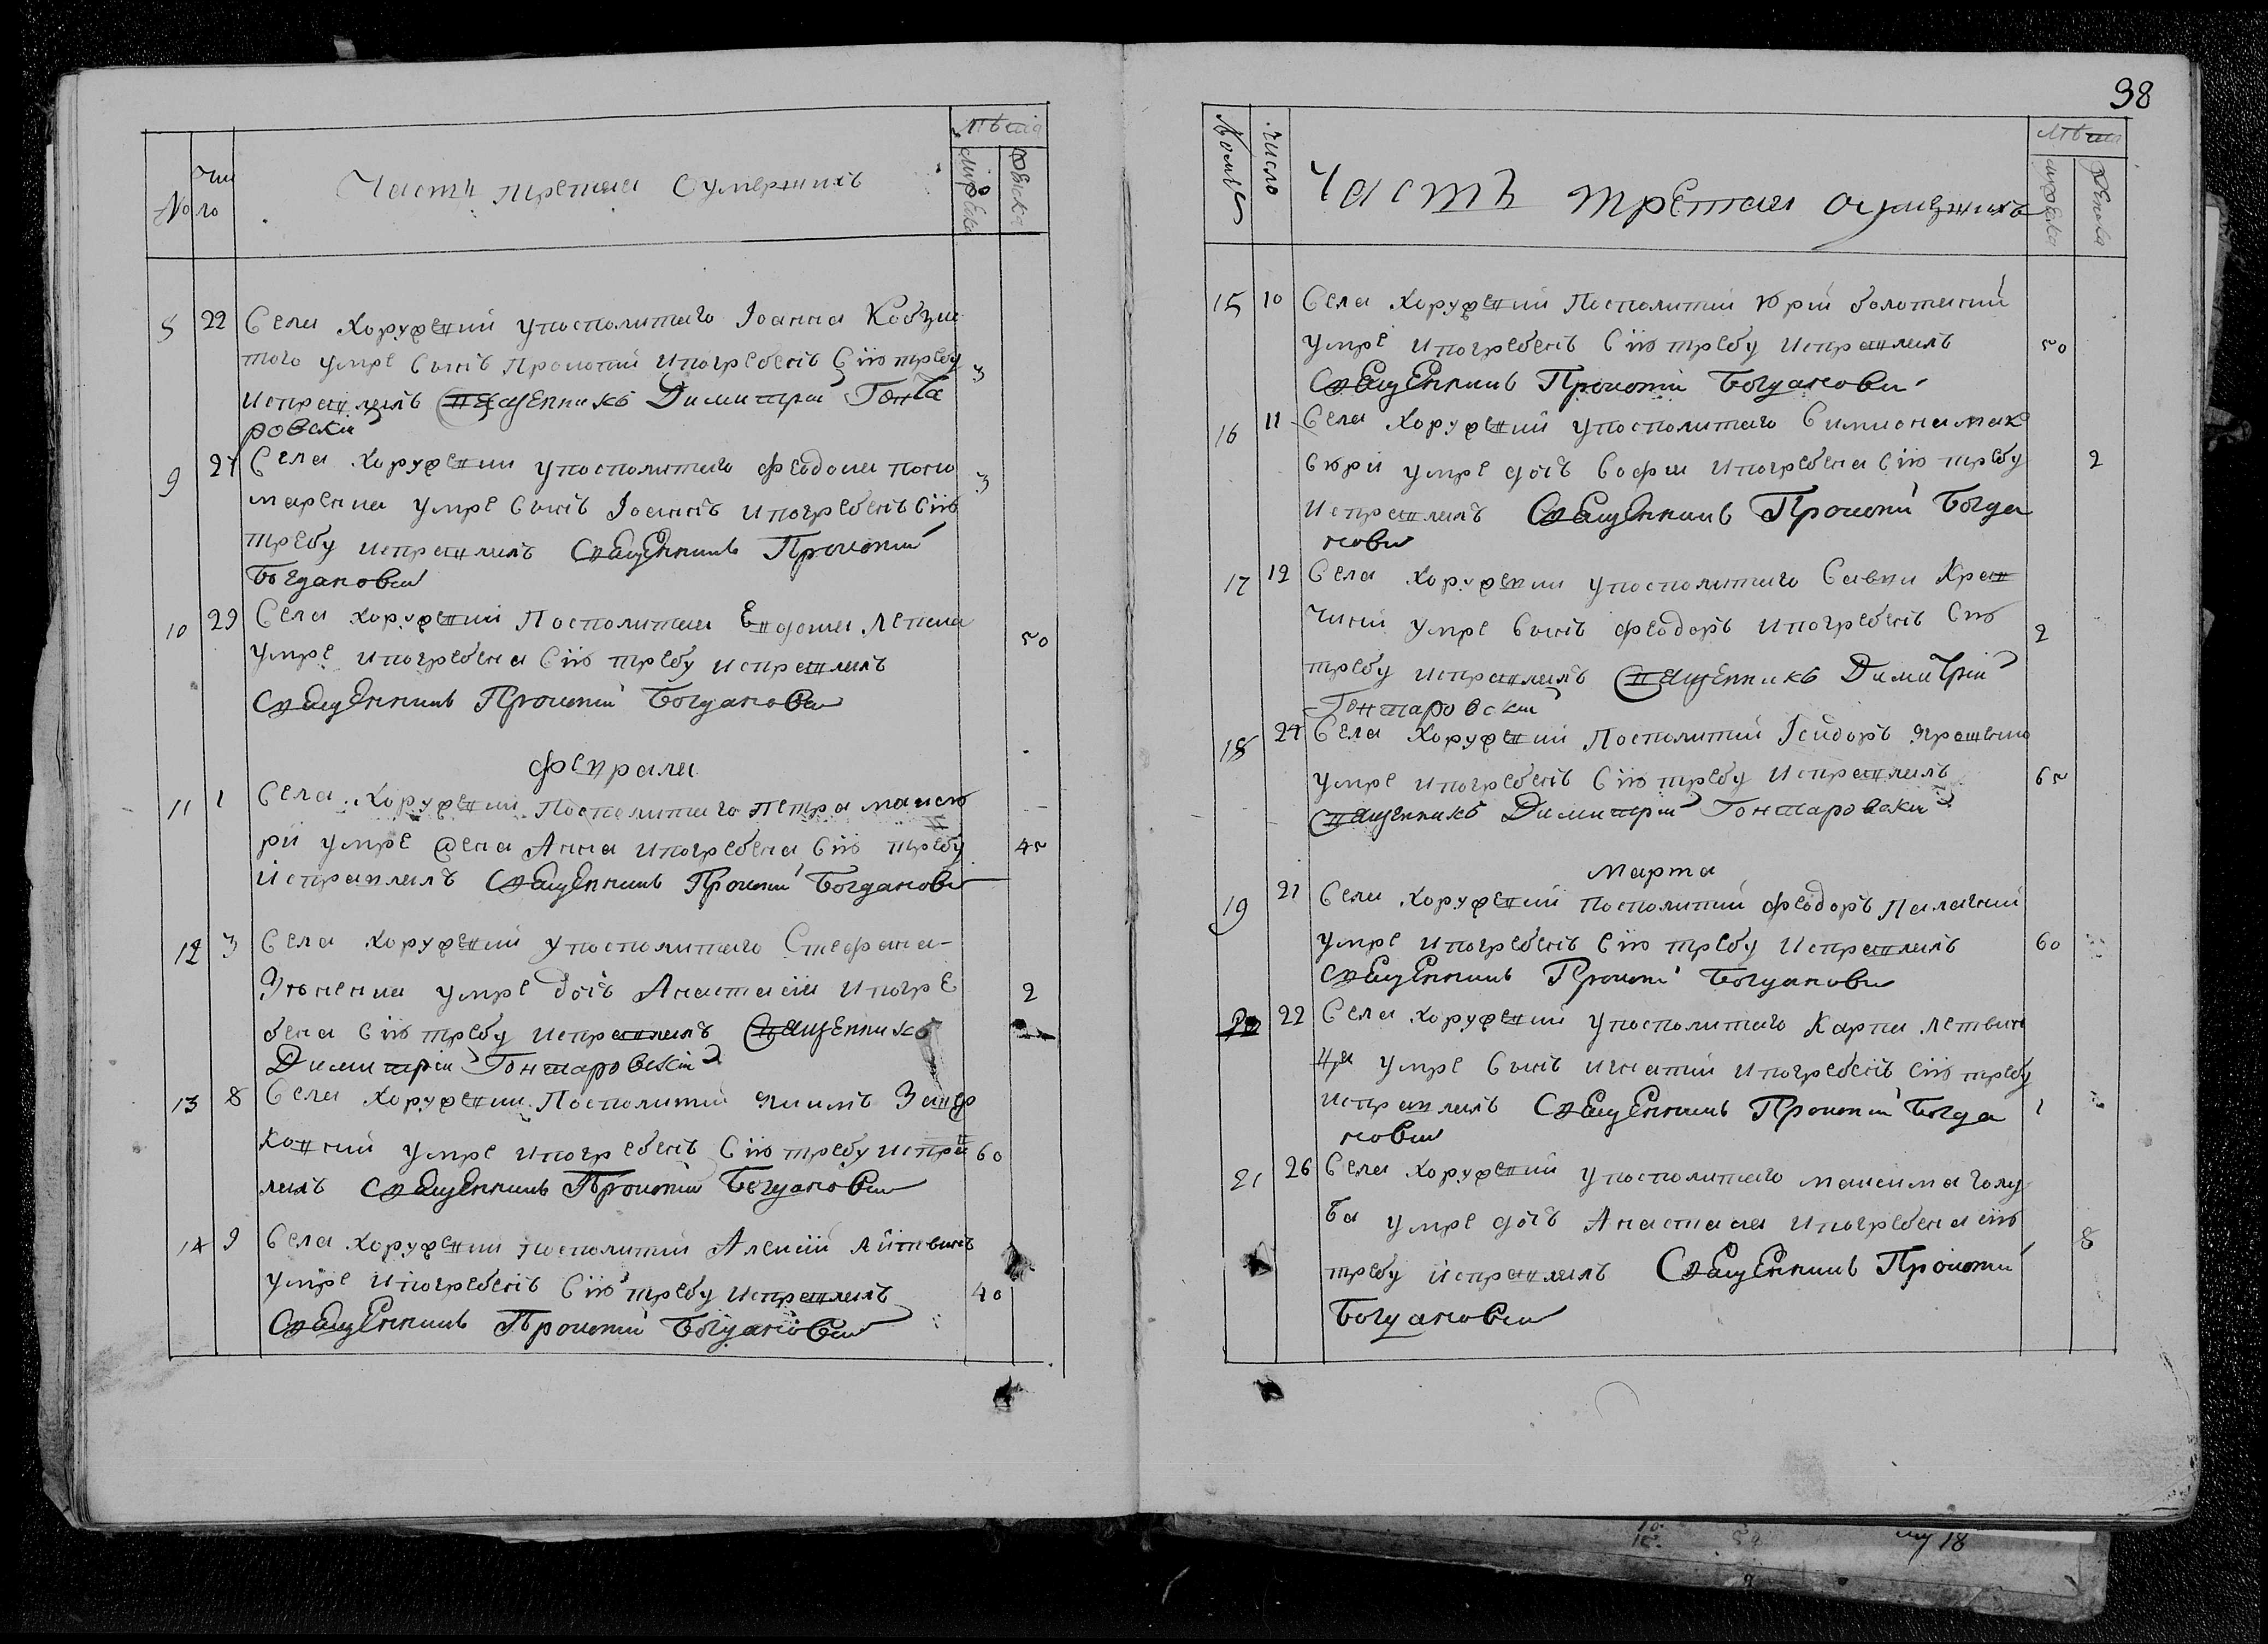 №
Чис
ло
Часть третая Оумершихъ
Лѣта
Мужеска
Женска
8 22 Села Хоружевки упосполитаго Іоанна Кобзис
того умре Сынъ Прокопій и погребенъ Сію требу 3
исправлялъ Священникъ Димитрій Гонта
ровскій
9 27 Села Хоружевки упосполитаго Феодора Поно
маренка умре Сынъ Іоаннъ и погребенъ Сію 3
требу исправлялъ Священникъ Прокопій
Богдановъ
10 29 Села Хоружевки Посполитая Евдокия
умре и погребена Сію требу исправлялъ 50
Священникъ Прокопій Богдановъ
Февраля
11 1 Села Хоружевки Посполитаго Петра Максю
ри умре жена Анна и погребена Сію требу 45
исправлялъ Священникъ Прокопій Богдановъ
12 3 Села Хоружевки упосполитаго Стефана
умре дочь Анастасія и погре 2
бена Сію требу исправлялъ Священникъ
Димитрій Гонтаровскій
13 8 Села Хоружевки Посполитий Якимъ
умре и погребенъ Сію требу исправ 60
лялъ Священникъ Прокопій Богдановъ
14 9 Села Хоружевки посполитий Алексій Литвинъ
умре и погребенъ Сію требу исправлялъ 40
Священникъ Прокопій Богдановъ
98
Число
Часть третая оумершихъ
Лѣта
Мужеска
Женска
15 10 Села Хоружевки Посполитий Юрій Болотній
умре и погребенъ Сію требу исправлялъ 50
Священникъ Прокопій Богдановъ
16 11 Села Хоружевки упосполитаго Симиона Мак
сюри умре дочъ София и погребена Сію требу 2
исправлялъ Священникъ Прокопій Богда
новъ
17 12 Села Хоружевки упосполитаго Савки Крав
умре Сынъ Феодоръ и погребенъ Сію 2
требу исправлялъ Священникъ Димитрій
Гонтаровскій
18 27 Села Хоружевки Посполитий Ісидоръ
умре и погребенъ Сію требу исправлялъ 65
Священникъ Димитрій Гонтаровскій
Марта
19 21 Села Хоружевки посполитий Феодоръ
умре и погребенъ Сію требу исправлялъ 60
Священникъ Прокопій Богдановъ
20 22 Села Хоружевки упосполитаго Карпа Летвин
умре Сынъ Игнатий и погребенъ сію требу
исправлялъ Священникъ Прокопій Богда 1
новъ
21 26 Села Хоружевки упосполитаго Максима Голу
ба умре дочъ Анастасия и погребена сію
требу исправлялъ Священникъ Прокопій 8
Богдановъ